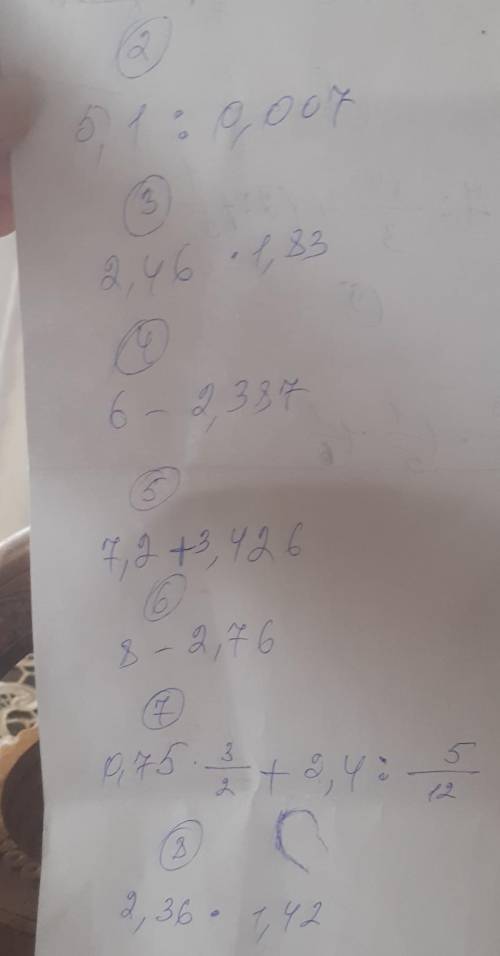 2
5,1 : 0,007
3
2,46 · 1,83
4
6 - 2,387
5
7,2 + 3,426
6
8 - 2,76
7
0,75 · 3/2 + 2,4 : 5/12
8
2,36 · 1,42